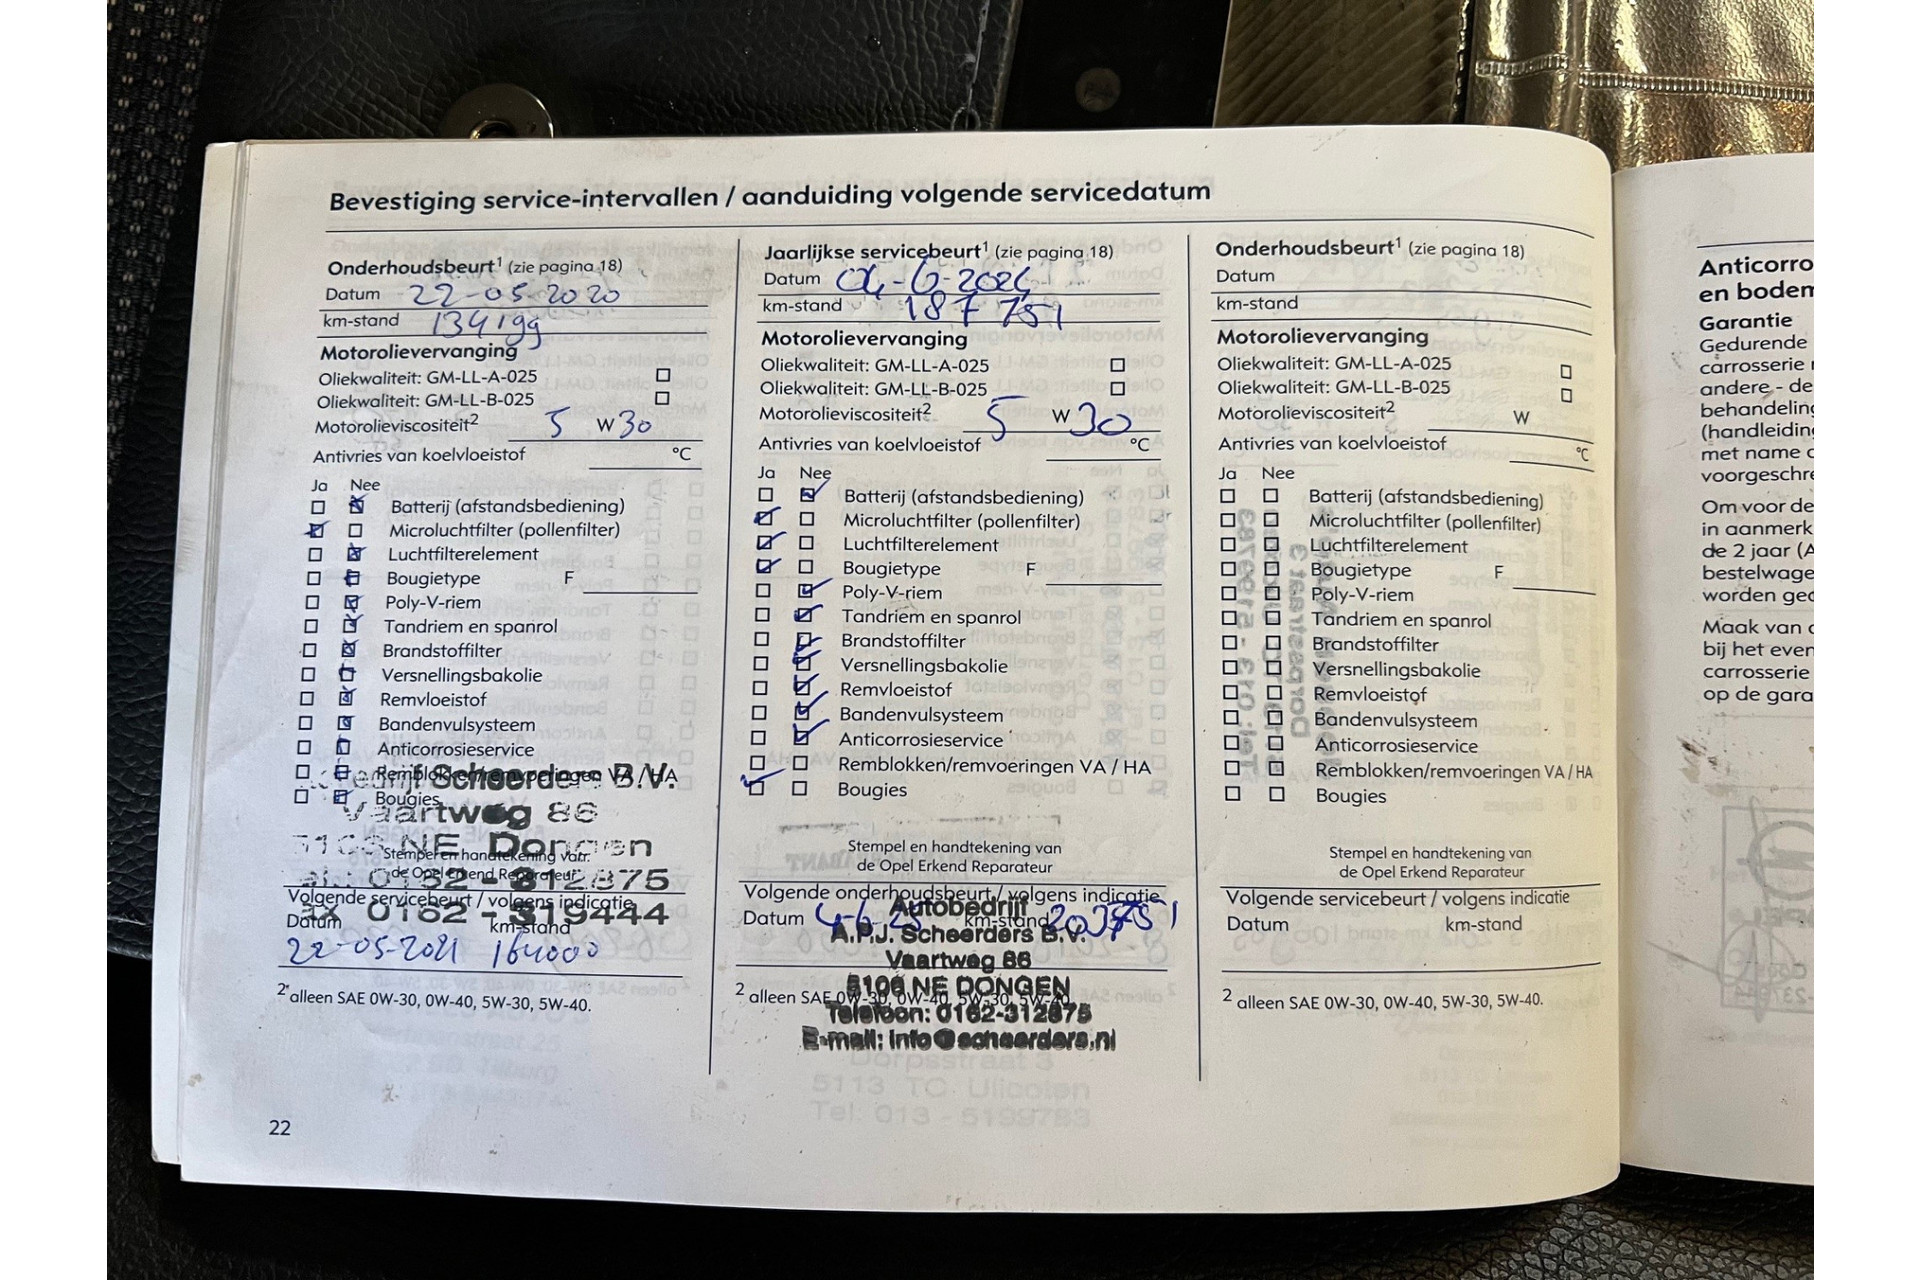 Bevestiging service-intervallen / aanduiding volgende servicedatum
Onderhoudsbeurt¹ (zie pagina 18)
Datum 22-05-2020
km-stand 134199
Motorolievervanging
Oliekwaliteit: GM-LL-A-025
Oliekwaliteit: GM-LL-B-025
Motorolieviscositeit² 5 W 30
Antivries van koelvloeistof °C
Ja Nee
Batterij (afstandsbediening)
Microluchtfilter (pollenfilter)
Luchtfilterelement
Bougietype F
Poly-V-riem
Tandriem en spanrol
Brandstoffilter
Versnellingsbakolie
Remvloeistof
Bandenvulsysteem
Anticorrosieservice
Remblokken/remvoeringen VA / HA
Bougies
Scheerders B.V.
Vaartweg 86
NE Dongen
Stempel en handtekening van
de Opel Erkend Reparateur
0162-312875
Volgende servicebeurt / volgens indicatie
0162-319444
Datum km-stand
22-05-2021 164000
² alleen SAE 0W-30, 0W-40, 5W-30, 5W-40.
22
Jaarlijkse servicebeurt¹ (zie pagina 18)
Datum 04-6-2024
km-stand 187 751
Motorolievervanging
Oliekwaliteit: GM-LL-A-025
Oliekwaliteit: GM-LL-B-025
Motorolieviscositeit² 5 W 30
Antivries van koelvloeistof °C
Ja Nee
Batterij (afstandsbediening)
Microluchtfilter (pollenfilter)
Luchtfilterelement
Bougietype F
Poly-V-riem
Tandriem en spanrol
Brandstoffilter
Versnellingsbakolie
Remvloeistof
Bandenvulsysteem
Anticorrosieservice
Remblokken/remvoeringen VA / HA
Bougies
Stempel en handtekening van
de Opel Erkend Reparateur
Volgende onderhoudsbeurt / volgens indicatie
Datum 4-6-25 km-stand
Autobedrijf
A.P.J. Scheerders B.V.
Vaartweg 86
NE DONGEN
² alleen SAE 0W-30, 0W-40, 5W-30, 5W-40.
Telefoon: 0162-312875
E-mail: info@scheerders.nl
Dorpsstraat 3
5113 TC Ulicoten
Tel: 013 - 5199783
Onderhoudsbeurt¹ (zie pagina 18)
Datum
km-stand
Motorolievervanging
Oliekwaliteit: GM-LL-A-025
Oliekwaliteit: GM-LL-B-025
Motorolieviscositeit² W
Antivries van koelvloeistof °C
Ja Nee
Batterij (afstandsbediening)
Microluchtfilter (pollenfilter)
Luchtfilterelement
Bougietype F
Poly-V-riem
Tandriem en spanrol
Brandstoffilter
Versnellingsbakolie
Remvloeistof
Bandenvulsysteem
Anticorrosieservice
Remblokken/remvoeringen VA / HA
Bougies
Stempel en handtekening van
de Opel Erkend Reparateur
Volgende servicebeurt / volgens indicatie
Datum km-stand
² alleen SAE 0W-30, 0W-40, 5W-30, 5W-40.
Anticorro
en bodem
Garantie
Gedurende
carrosserie
andere - de
behandeling
(handleiding
met name
voorgeschre
Om voor de
in aanmerk
de 2 jaar (A
bestelwage
worden ged
Maak van
bij het even
carrosserie
op de gara